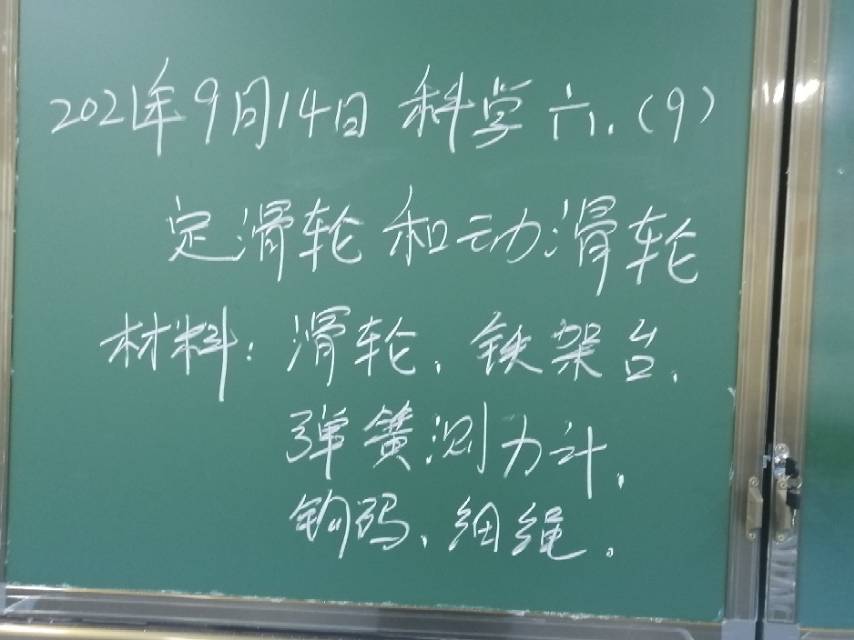 2021年9月14日 科学 六.(9)
定滑轮和动滑轮
材料:滑轮、铁架台、
弹簧测力计、
钩码、细绳。